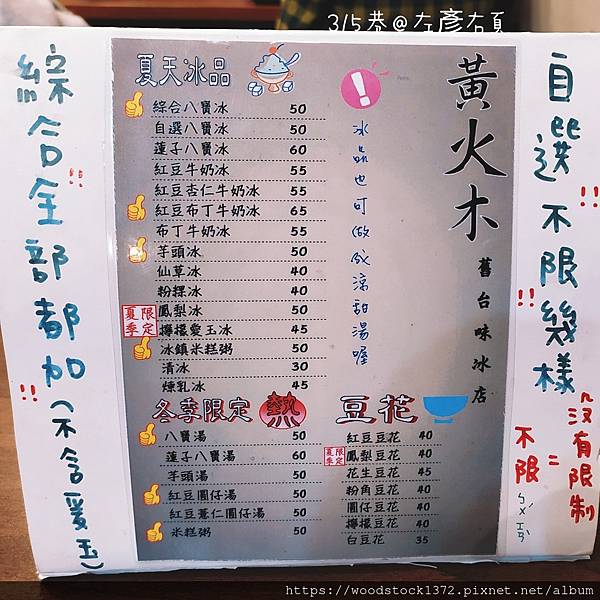 315巷@左彥右頁
綜合全部都加(不含愛玉)
!!
!!
夏天冰品
綜合八寶冰 50
自選八寶冰 50
蓮子八寶冰 60
紅豆牛奶冰 55
紅豆杏仁牛奶冰 55
紅豆布丁牛奶冰 65
布丁牛奶冰 55
芋頭冰 50
仙草冰 40
粉粿冰 40
夏季限定
鳳梨冰 50
檸檬愛玉冰 45
冰鎮米糕粥 50
清冰 30
煉乳冰 45
!
冰品也可做成涼甜湯喔
黃火木
舊台味冰店
冬季限定 熱
八寶湯 50
蓮子八寶湯 60
芋頭湯 50
紅豆圓仔湯 50
紅豆薏仁圓仔湯 50
米糕粥 50
豆花
紅豆豆花 40
夏季限定
鳳梨豆花 40
花生豆花 45
粉角豆花 40
圓仔豆花 40
檸檬豆花 40
白豆花 35
自選不限幾樣
!!
!!
沒有限制
=
不限
ㄅㄨˊ ㄒㄧㄢˋ
https://woodstock1372.pixnet.net/album